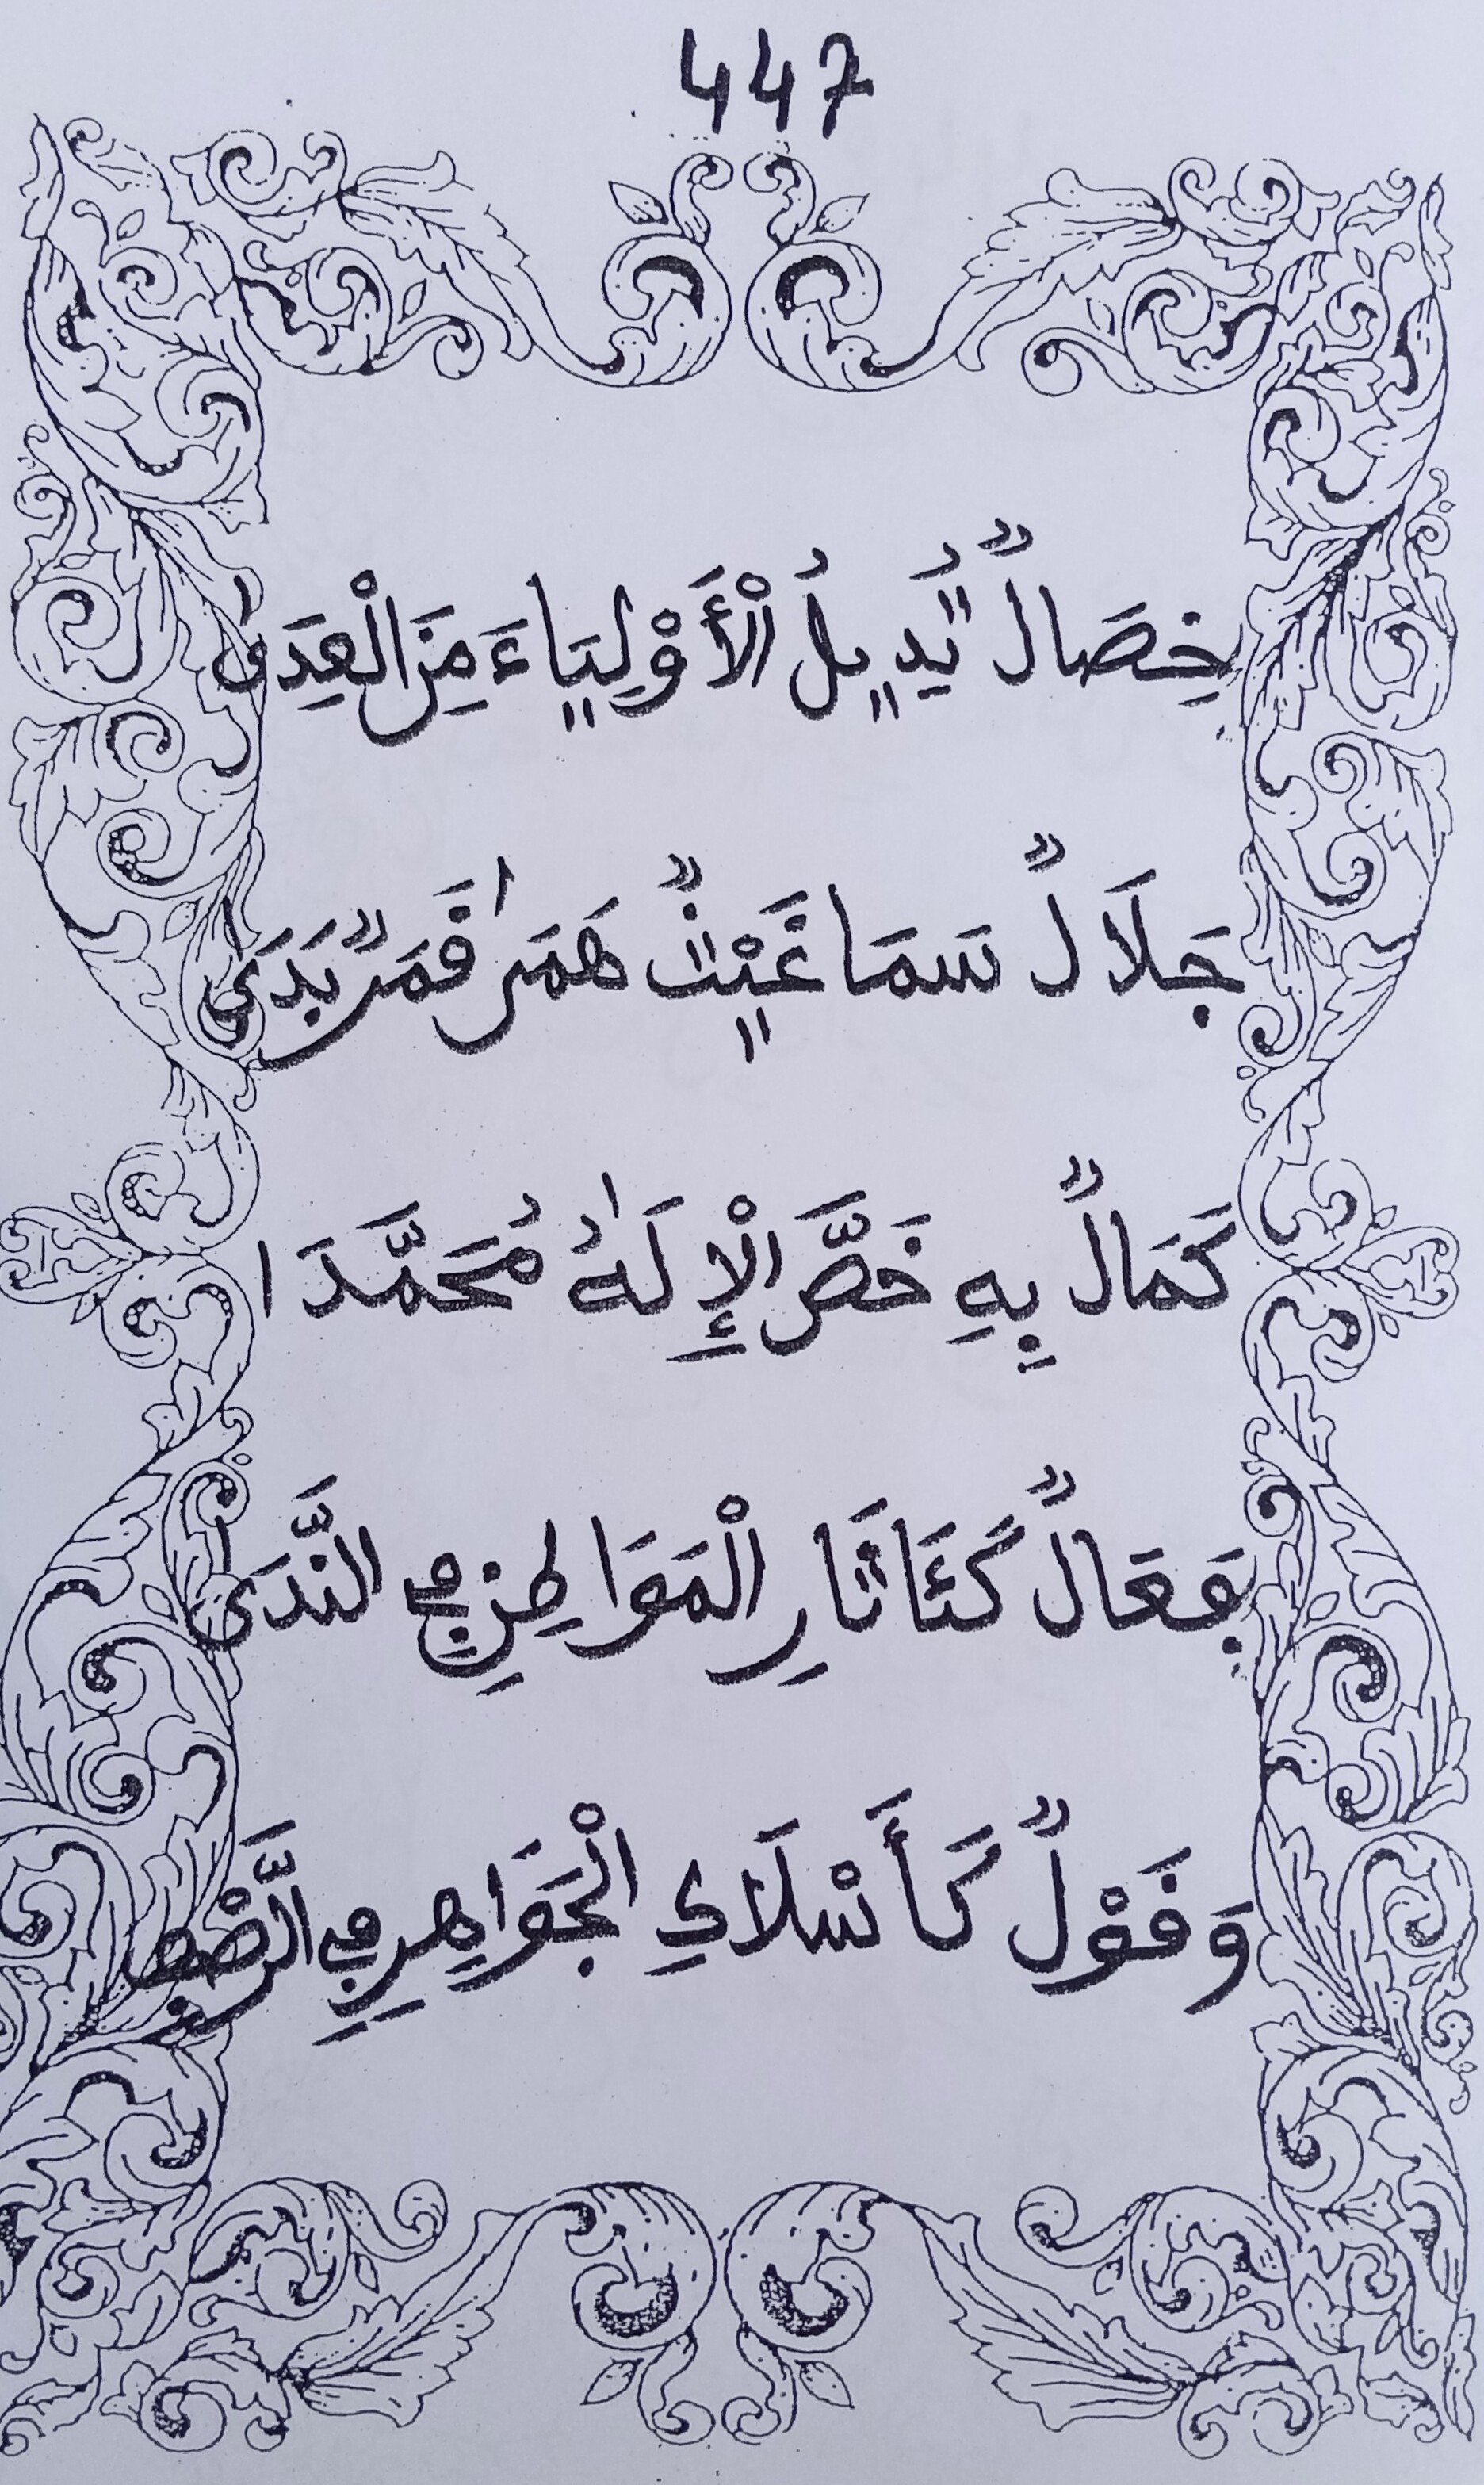 447
خِصَالٌ يُدِيلُ الْأَوْلِيَاءَ مِنَ الْعِدَىٰ
جَلَالٌ سَمَا غَيْثٌ هَمَىٰ قَمَرٌ بَدَىٰ
كَمَالٌ بِهِ خَصَّ الْإِلَٰهُ مُحَمَّدَا
فَعَالٌ كَئَاثَارِ الْمَوَاطِنِ فِي النَّدَى
وَقَوْلٌ كَأَسْلَاكِ الْجَوَاهِرِ فِي الرَّصْفِ